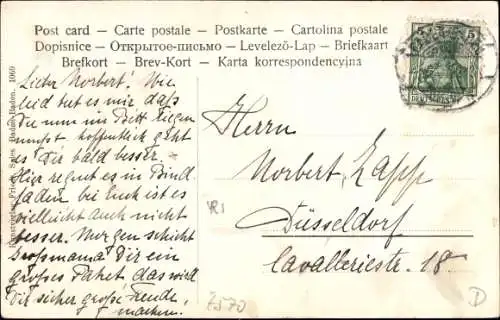 Post card – Carte postale – Postkarte – Cartolina postale
Dopisnice – Открытое-письмо – Levelező-Lap – Briefkaart
Brefkort – Brev-Kort – Karta korrespondencyjna
5
Lieber Norbert! Wie
leid tut es mir daß
Du nun im Bett liegen
mußt hoffentlich geht
es Dir bald besser. –
Hier regnet es in Bind
faden bei Euch ist es
vielleicht auch nicht
besser. Morgen schickt
Grossmama Dir ein
großes Paket das wird
Dir sicher große Freude
machen.
Herrn
Norbert Zapp
Düsseldorf
Cavalleriestr. 18.
R1
7570
D
Baden-Baden. 1060